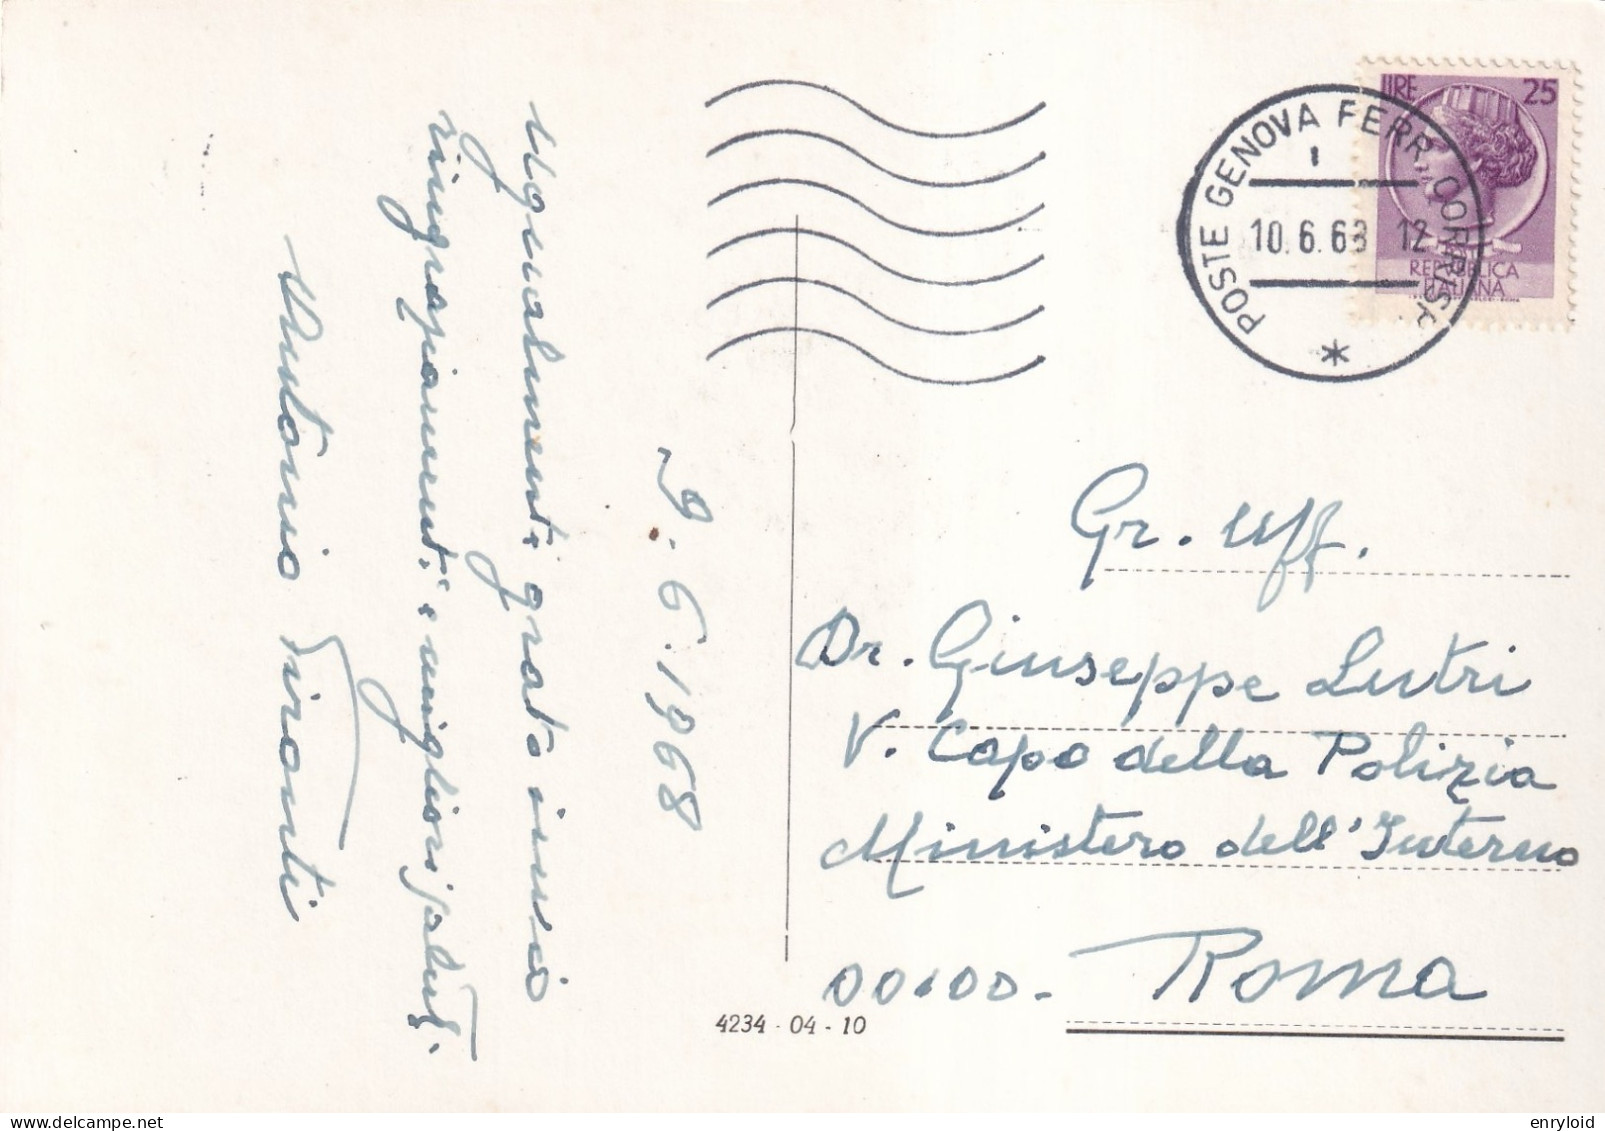 9.6.1968
Ugualmente grato invio
ringraziamenti e migliori saluti.
Antonio Pironti
LIRE 25
REPUBBLICA
ITALIANA
POSTE GENOVA FERR. CORRISP.
10.6.68 12
Gr. Uff.
Dr. Giuseppe Lutri
V. Capo della Polizia
Ministero dell'Interno
00100 - Roma
4234 - 04 - 10
enryloid